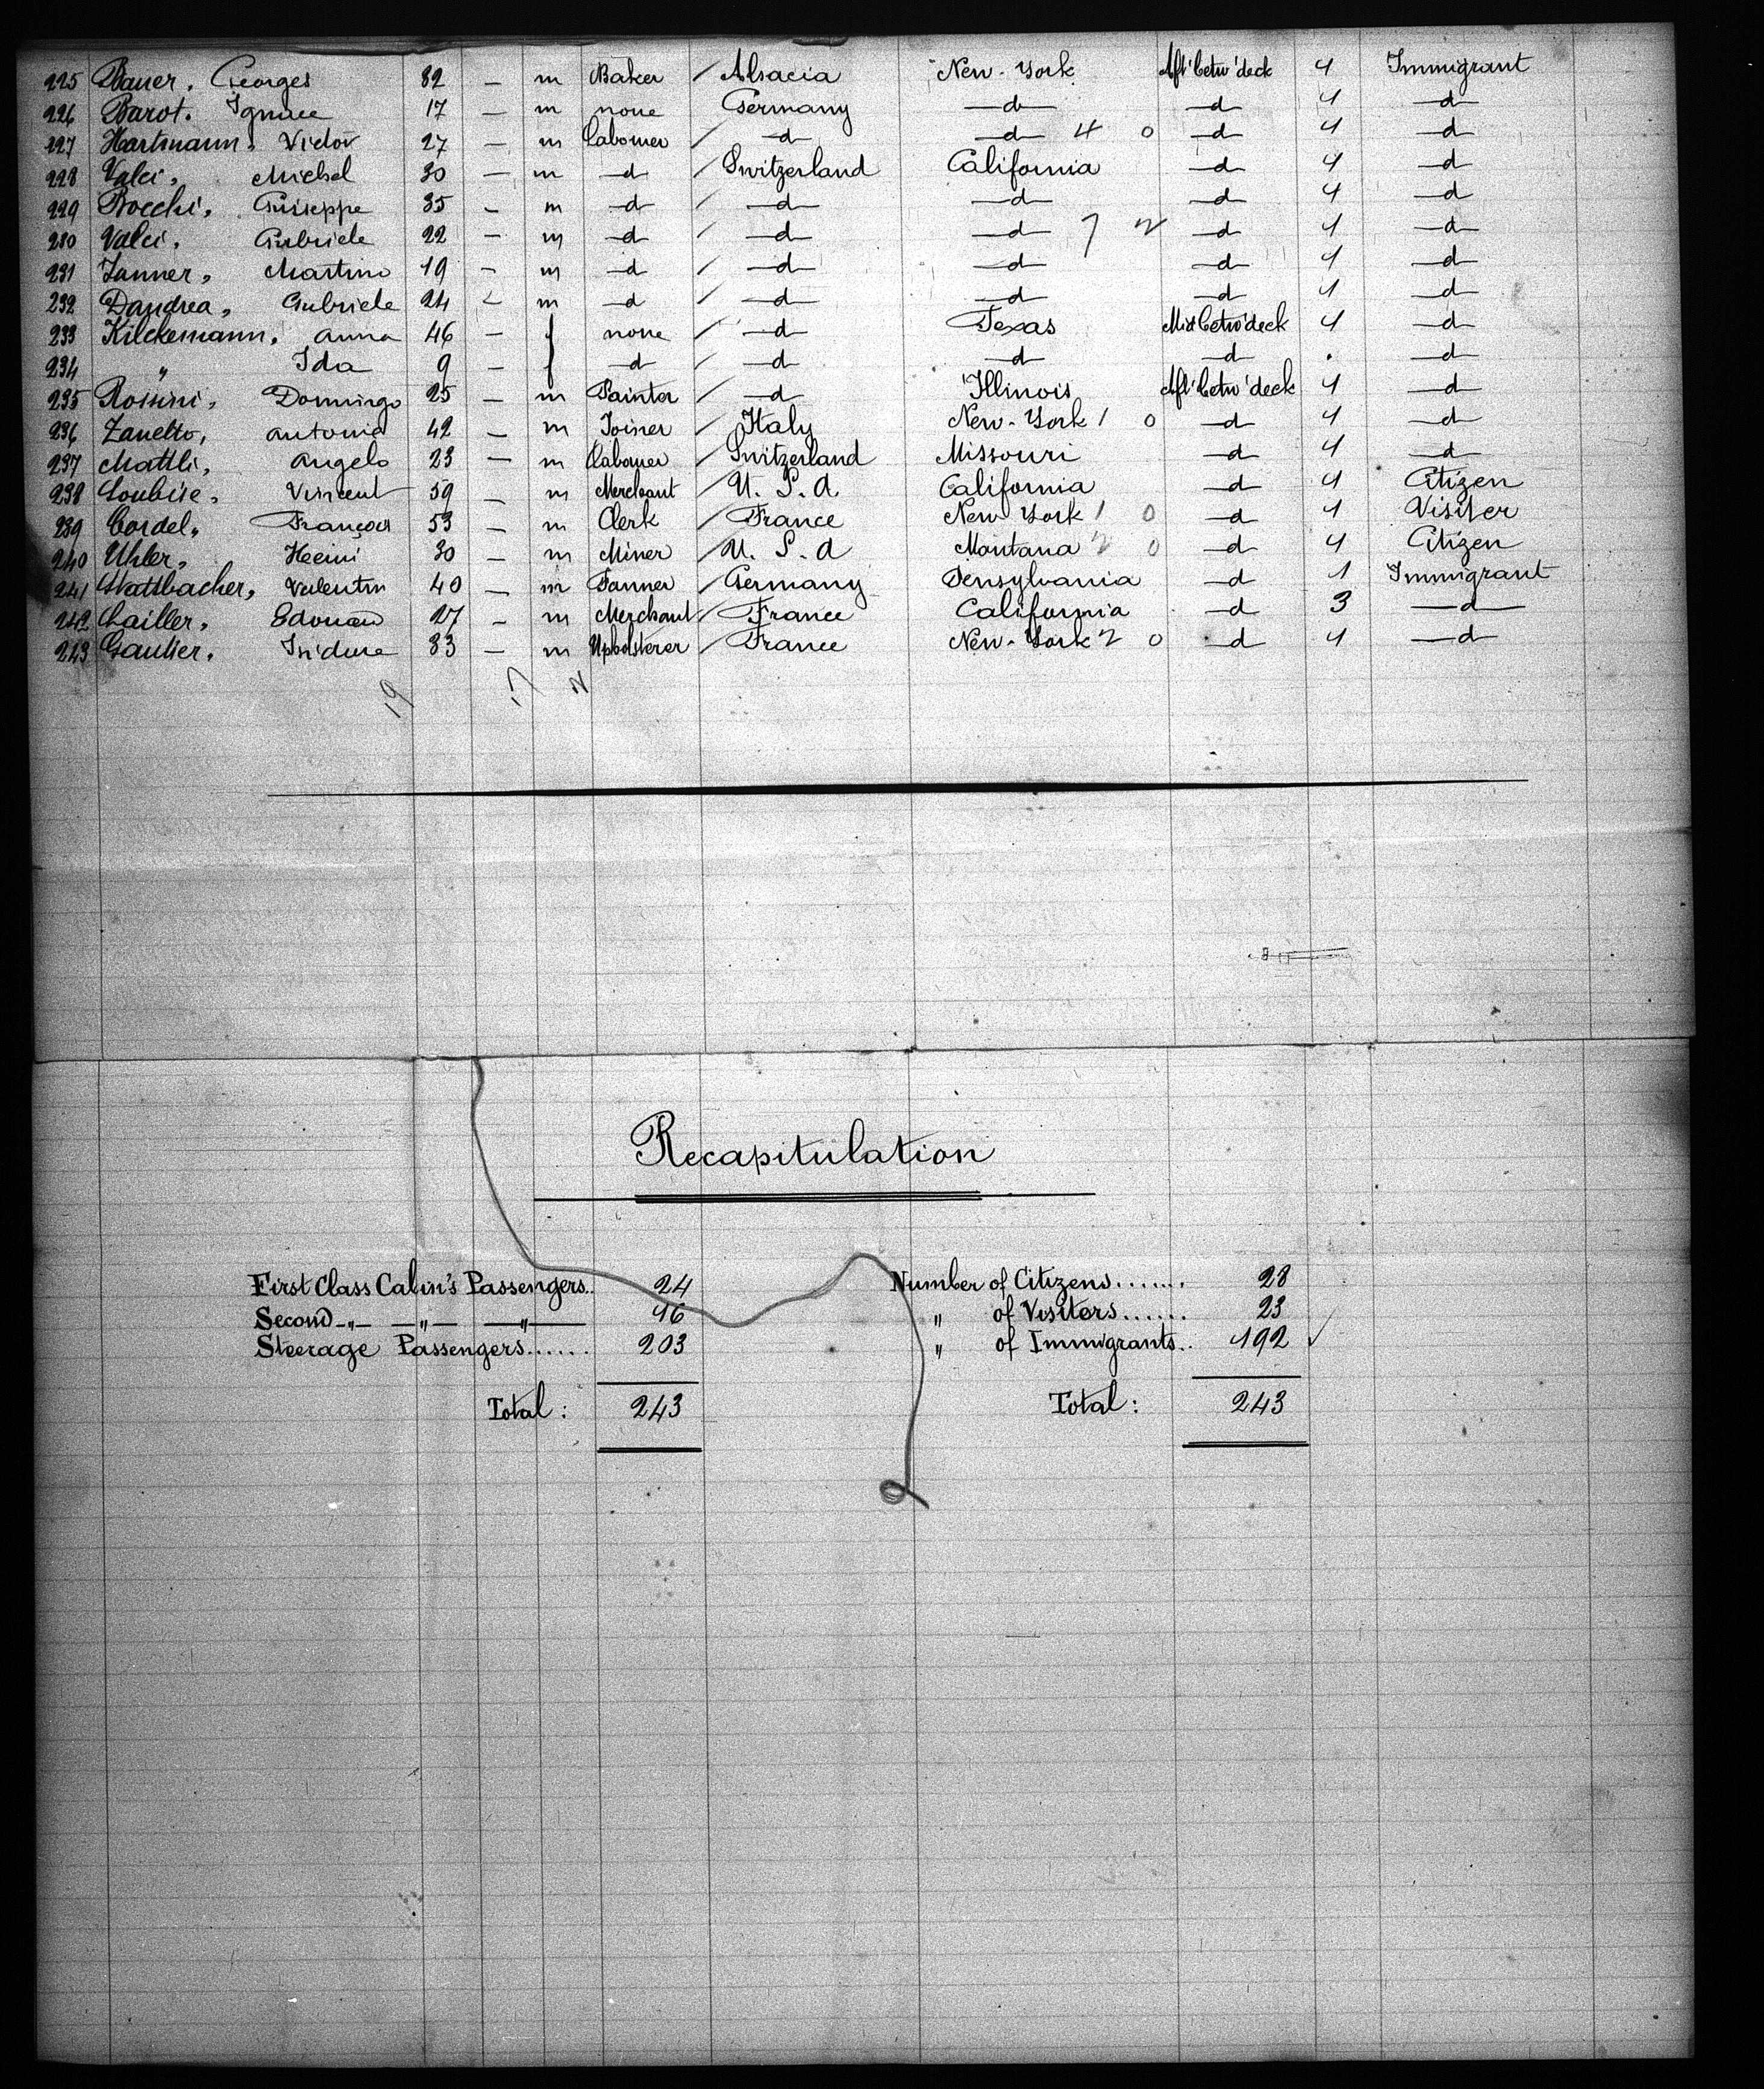 225 Bauer, Georges 32 — m Baker / Alsacia New-York Aft'betw'deck 1 Immigrant
226 Barot, Ignace 17 — m none / Germany —d— —d 1 —d
227 Hartmann, Victor 27 — m Labourer / —d —d— 4 0 —d 1 —d
228 Valci, Michel 30 — m —d / Switzerland California —d 1 —d
229 Bocchi, Guiseppe 35 — m —d / —d —d —d 1 —d
230 Valci, Gabriele 22 — m —d / —d —d 7 —d 1 —d
231 Janner, Martino 19 — m —d / —d —d —d 1 —d
232 Dandrea, Gabriele 24 — m —d / —d —d —d 1 —d
233 Kilckemann, Anna 46 — f none / —d Texas Mid betw'deck 1 —d
234 " Ida 9 — f —d / —d —d —d . —d
235 Roisini, Domingo 25 — m Painter / —d Illinois Aft'betw'deck 1 —d
236 Zanetto, Antonio 42 — m Joiner / Italy New-York 1 0 —d 1 —d
237 Mattli, Angelo 23 — m Labourer / Switzerland Missouri —d 1 —d
238 Loubise, Vincent 59 — m Merchant / U. S. A California —d 1 Citizen
239 Cordel, François 53 — m Clerk / France New York 1 0 —d 1 Visiter
240 Uhler, Heini 30 — m Miner / U. S. A Montana 2 0 —d 1 Citizen
241 Wattbacher, Valentin 40 — m Tanner / Germany Pensylvania —d 1 Immigrant
242 Lailler, Edouard 27 — m Merchant / France California —d 3 —d
243 Gautier, Isidore 33 — m Upholsterer / France New-York 2 0 —d 1 —d
19 17 2
Recapitulation
First Class Cabin's Passengers.. 24
Second -"- —"— —"— 16
Steerage Passengers...... 203
Total: 243
Number of Citizens....... 28
" of Visitors...... 23
" of Immigrants.. 192 ✓
Total: 243